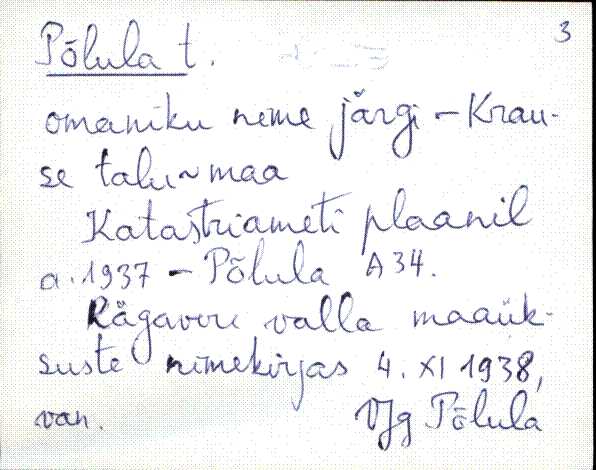 3
Põlula t.
omaniku nime järgi – Krau-
se talu ~ maa
Katastriameti plaanil
a. 1937 – Põlula A 34.
Rägavere valla maaük-
suste nimekirjas 4. XI 1938,
van. Vjg Põlula